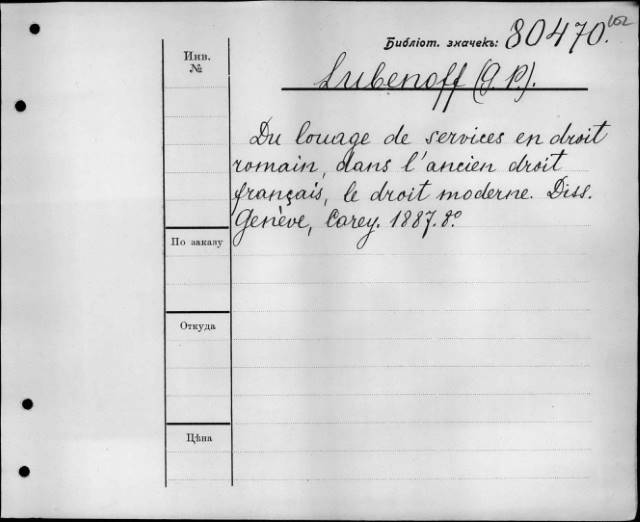 Библіот. значекъ: 80470.
Инв.
№
Lubenoff (G. P.).
Du louage de services en droit
romain, dans l'ancien droit
français, le droit moderne. Diss.
Genève, Carey. 1887. 8°
По заказу
Откуда
Цѣна